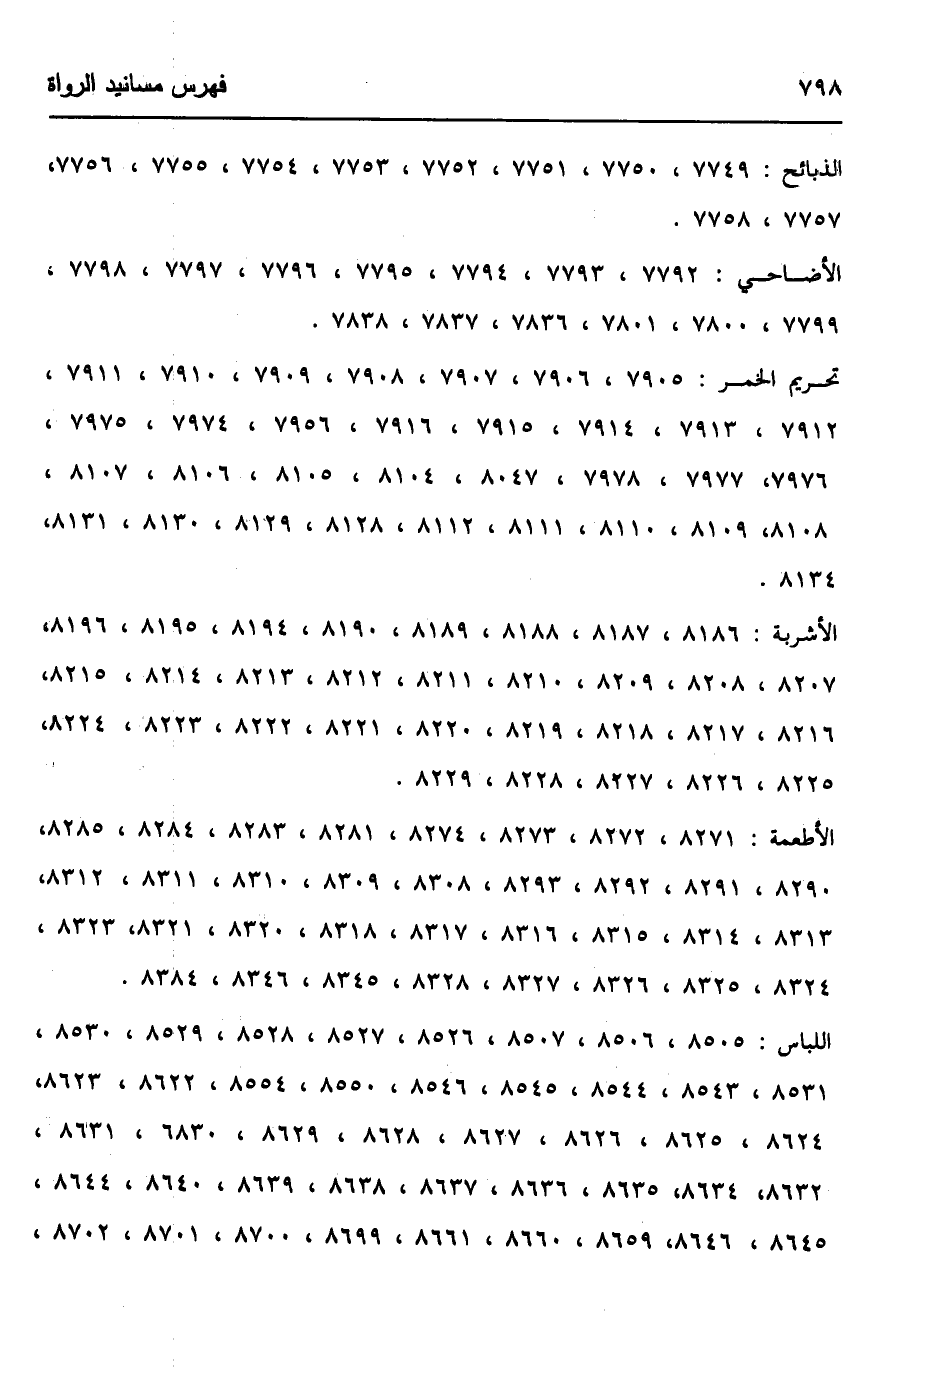 ٧٩٨ فهرس مسانيد الرواة
الذبائح : ٧٧٤٩ ، ٧٧٥٠ ، ٧٧٥١ ، ٧٧٥٢ ، ٧٧٥٣ ، ٧٧٥٤ ، ٧٧٥٥ ، ٧٧٥٦،
٧٧٥٧ ، ٧٧٥٨ .
الأضـاحـي : ٧٧٩٢ ، ٧٧٩٣ ، ٧٧٩٤ ، ٧٧٩٥ ، ٧٧٩٦ ، ٧٧٩٧ ، ٧٧٩٨ ،
٧٧٩٩ ، ٧٨٠٠ ، ٧٨٠١ ، ٧٨٣٦ ، ٧٨٣٧ ، ٧٨٣٨ .
تحـريم الخمـر : ٧٩٠٥ ، ٧٩٠٦ ، ٧٩٠٧ ، ٧٩٠٨ ، ٧٩٠٩ ، ٧٩١٠ ، ٧٩١١ ،
٧٩١٢ ، ٧٩١٣ ، ٧٩١٤ ، ٧٩١٥ ، ٧٩١٦ ، ٧٩٥٦ ، ٧٩٧٤ ، ٧٩٧٥ ،
٧٩٧٦، ٧٩٧٧ ، ٧٩٧٨ ، ٨٠٤٧ ، ٨١٠٤ ، ٨١٠٥ ، ٨١٠٦ ، ٨١٠٧ ،
٨١٠٨، ٨١٠٩ ، ٨١١٠ ، ٨١١١ ، ٨١١٢ ، ٨١٢٨ ، ٨١٢٩ ، ٨١٣٠ ، ٨١٣١،
٨١٣٤ .
الأشربة : ٨١٨٦ ، ٨١٨٧ ، ٨١٨٨ ، ٨١٨٩ ، ٨١٩٠ ، ٨١٩٤ ، ٨١٩٥ ، ٨١٩٦،
٨٢٠٧ ، ٨٢٠٨ ، ٨٢٠٩ ، ٨٢١٠ ، ٨٢١١ ، ٨٢١٢ ، ٨٢١٣ ، ٨٢١٤ ، ٨٢١٥،
٨٢١٦ ، ٨٢١٧ ، ٨٢١٨ ، ٨٢١٩ ، ٨٢٢٠ ، ٨٢٢١ ، ٨٢٢٢ ، ٨٢٢٣ ، ٨٢٢٤،
٨٢٢٥ ، ٨٢٢٦ ، ٨٢٢٧ ، ٨٢٢٨ ، ٨٢٢٩ .
الأطعمة : ٨٢٧١ ، ٨٢٧٢ ، ٨٢٧٣ ، ٨٢٧٤ ، ٨٢٨١ ، ٨٢٨٣ ، ٨٢٨٤ ، ٨٢٨٥،
٨٢٩٠ ، ٨٢٩١ ، ٨٢٩٢ ، ٨٢٩٣ ، ٨٣٠٨ ، ٨٣٠٩ ، ٨٣١٠ ، ٨٣١١ ، ٨٣١٢،
٨٣١٣ ، ٨٣١٤ ، ٨٣١٥ ، ٨٣١٦ ، ٨٣١٧ ، ٨٣١٨ ، ٨٣٢٠ ، ٨٣٢١، ٨٣٢٣ ،
٨٣٢٤ ، ٨٣٢٥ ، ٨٣٢٦ ، ٨٣٢٧ ، ٨٣٢٨ ، ٨٣٤٥ ، ٨٣٤٦ ، ٨٣٨٤ .
اللباس : ٨٥٠٥ ، ٨٥٠٦ ، ٨٥٠٧ ، ٨٥٢٦ ، ٨٥٢٧ ، ٨٥٢٨ ، ٨٥٢٩ ، ٨٥٣٠ ،
٨٥٣١ ، ٨٥٤٣ ، ٨٥٤٤ ، ٨٥٤٥ ، ٨٥٤٦ ، ٨٥٥٠ ، ٨٥٥٤ ، ٨٦٢٢ ، ٨٦٢٣،
٨٦٢٤ ، ٨٦٢٥ ، ٨٦٢٦ ، ٨٦٢٧ ، ٨٦٢٨ ، ٨٦٢٩ ، ٦٨٣٠ ، ٨٦٣١ ،
٨٦٣٢، ٨٦٣٤، ٨٦٣٥ ، ٨٦٣٦ ، ٨٦٣٧ ، ٨٦٣٨ ، ٨٦٣٩ ، ٨٦٤٠ ، ٨٦٤٤ ،
٨٦٤٥ ، ٨٦٤٦، ٨٦٥٩ ، ٨٦٦٠ ، ٨٦٦١ ، ٨٦٩٩ ، ٨٧٠٠ ، ٨٧٠١ ، ٨٧٠٢ ،